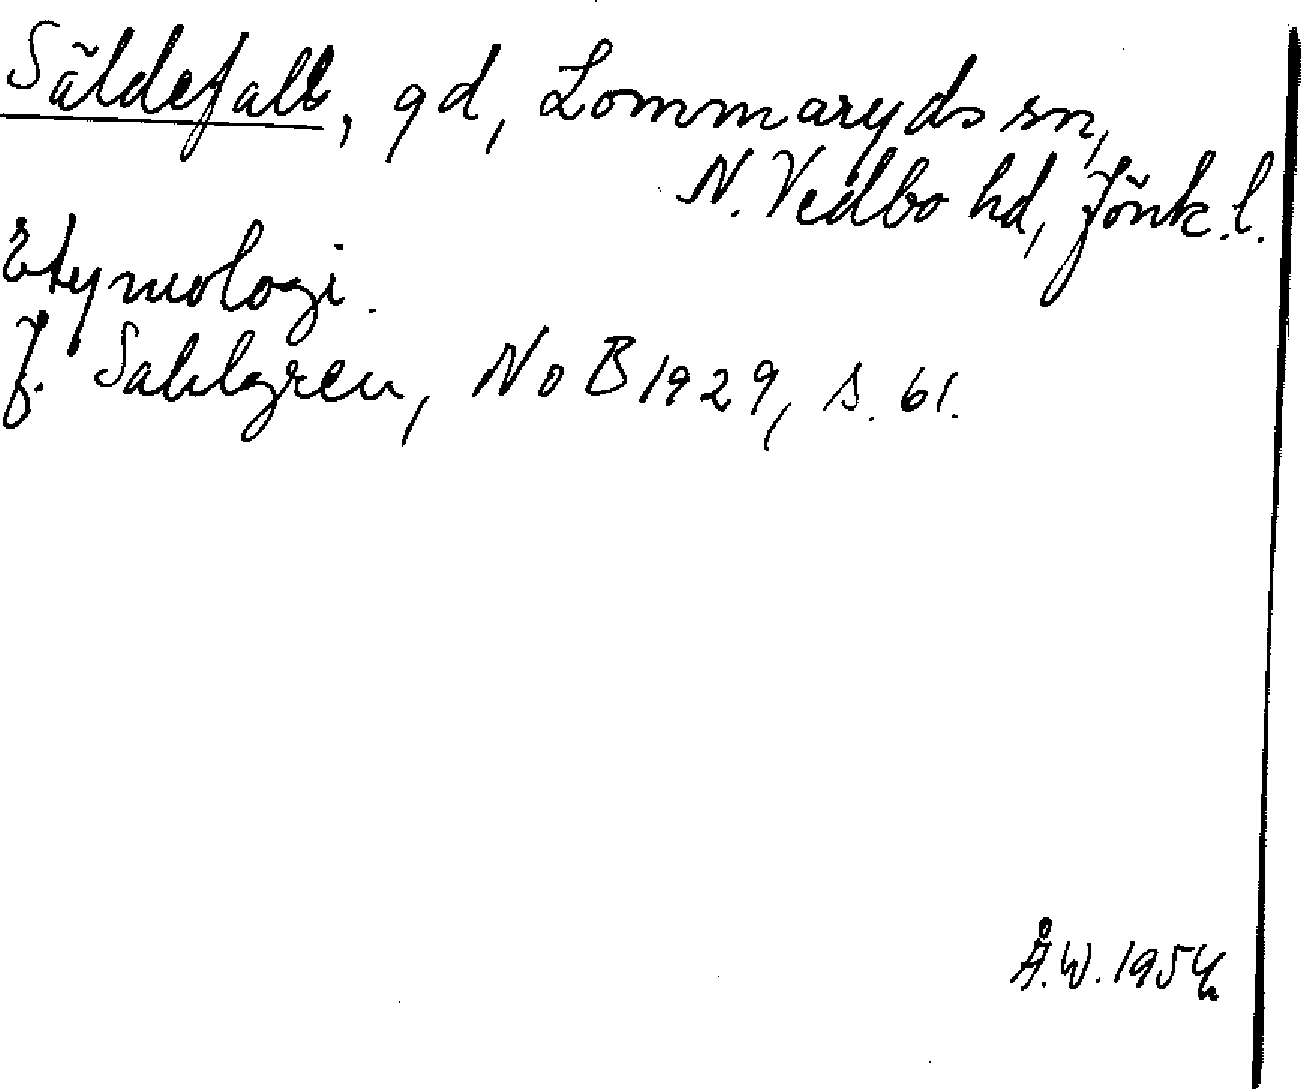 Säldefall, gd, Lommaryds sn,
N. Vedbo hd, Jönk. l.
Etymologi.
J. Sahlgren, NoB 1929, s. 61.
Å.W. 1954